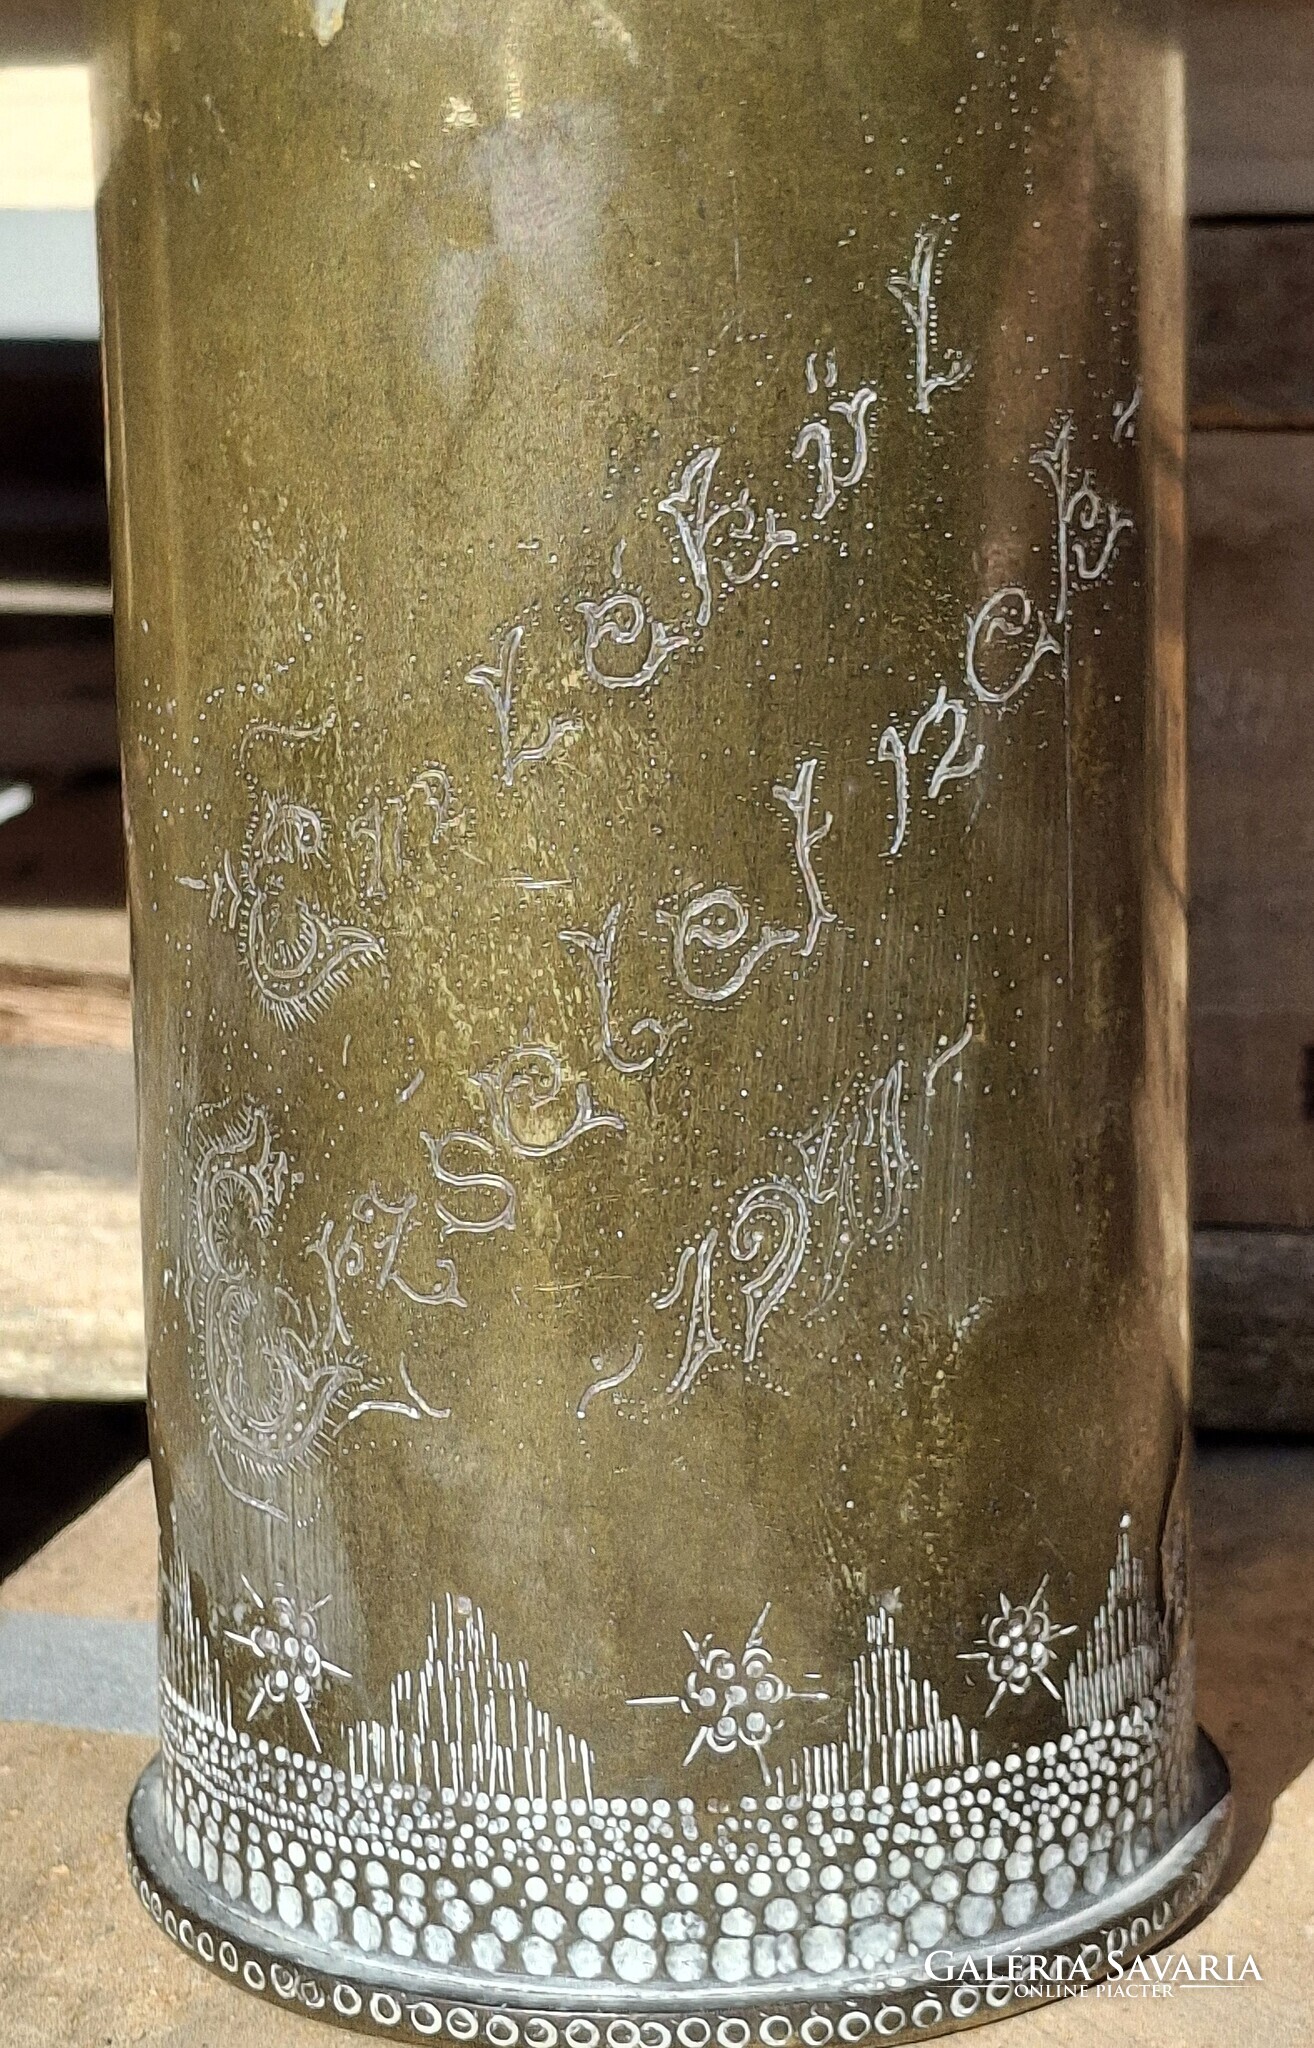 Emlékül
Erzsébetnek
1911
GALÉRIA SAVARIA
ONLINE PIACTÉR